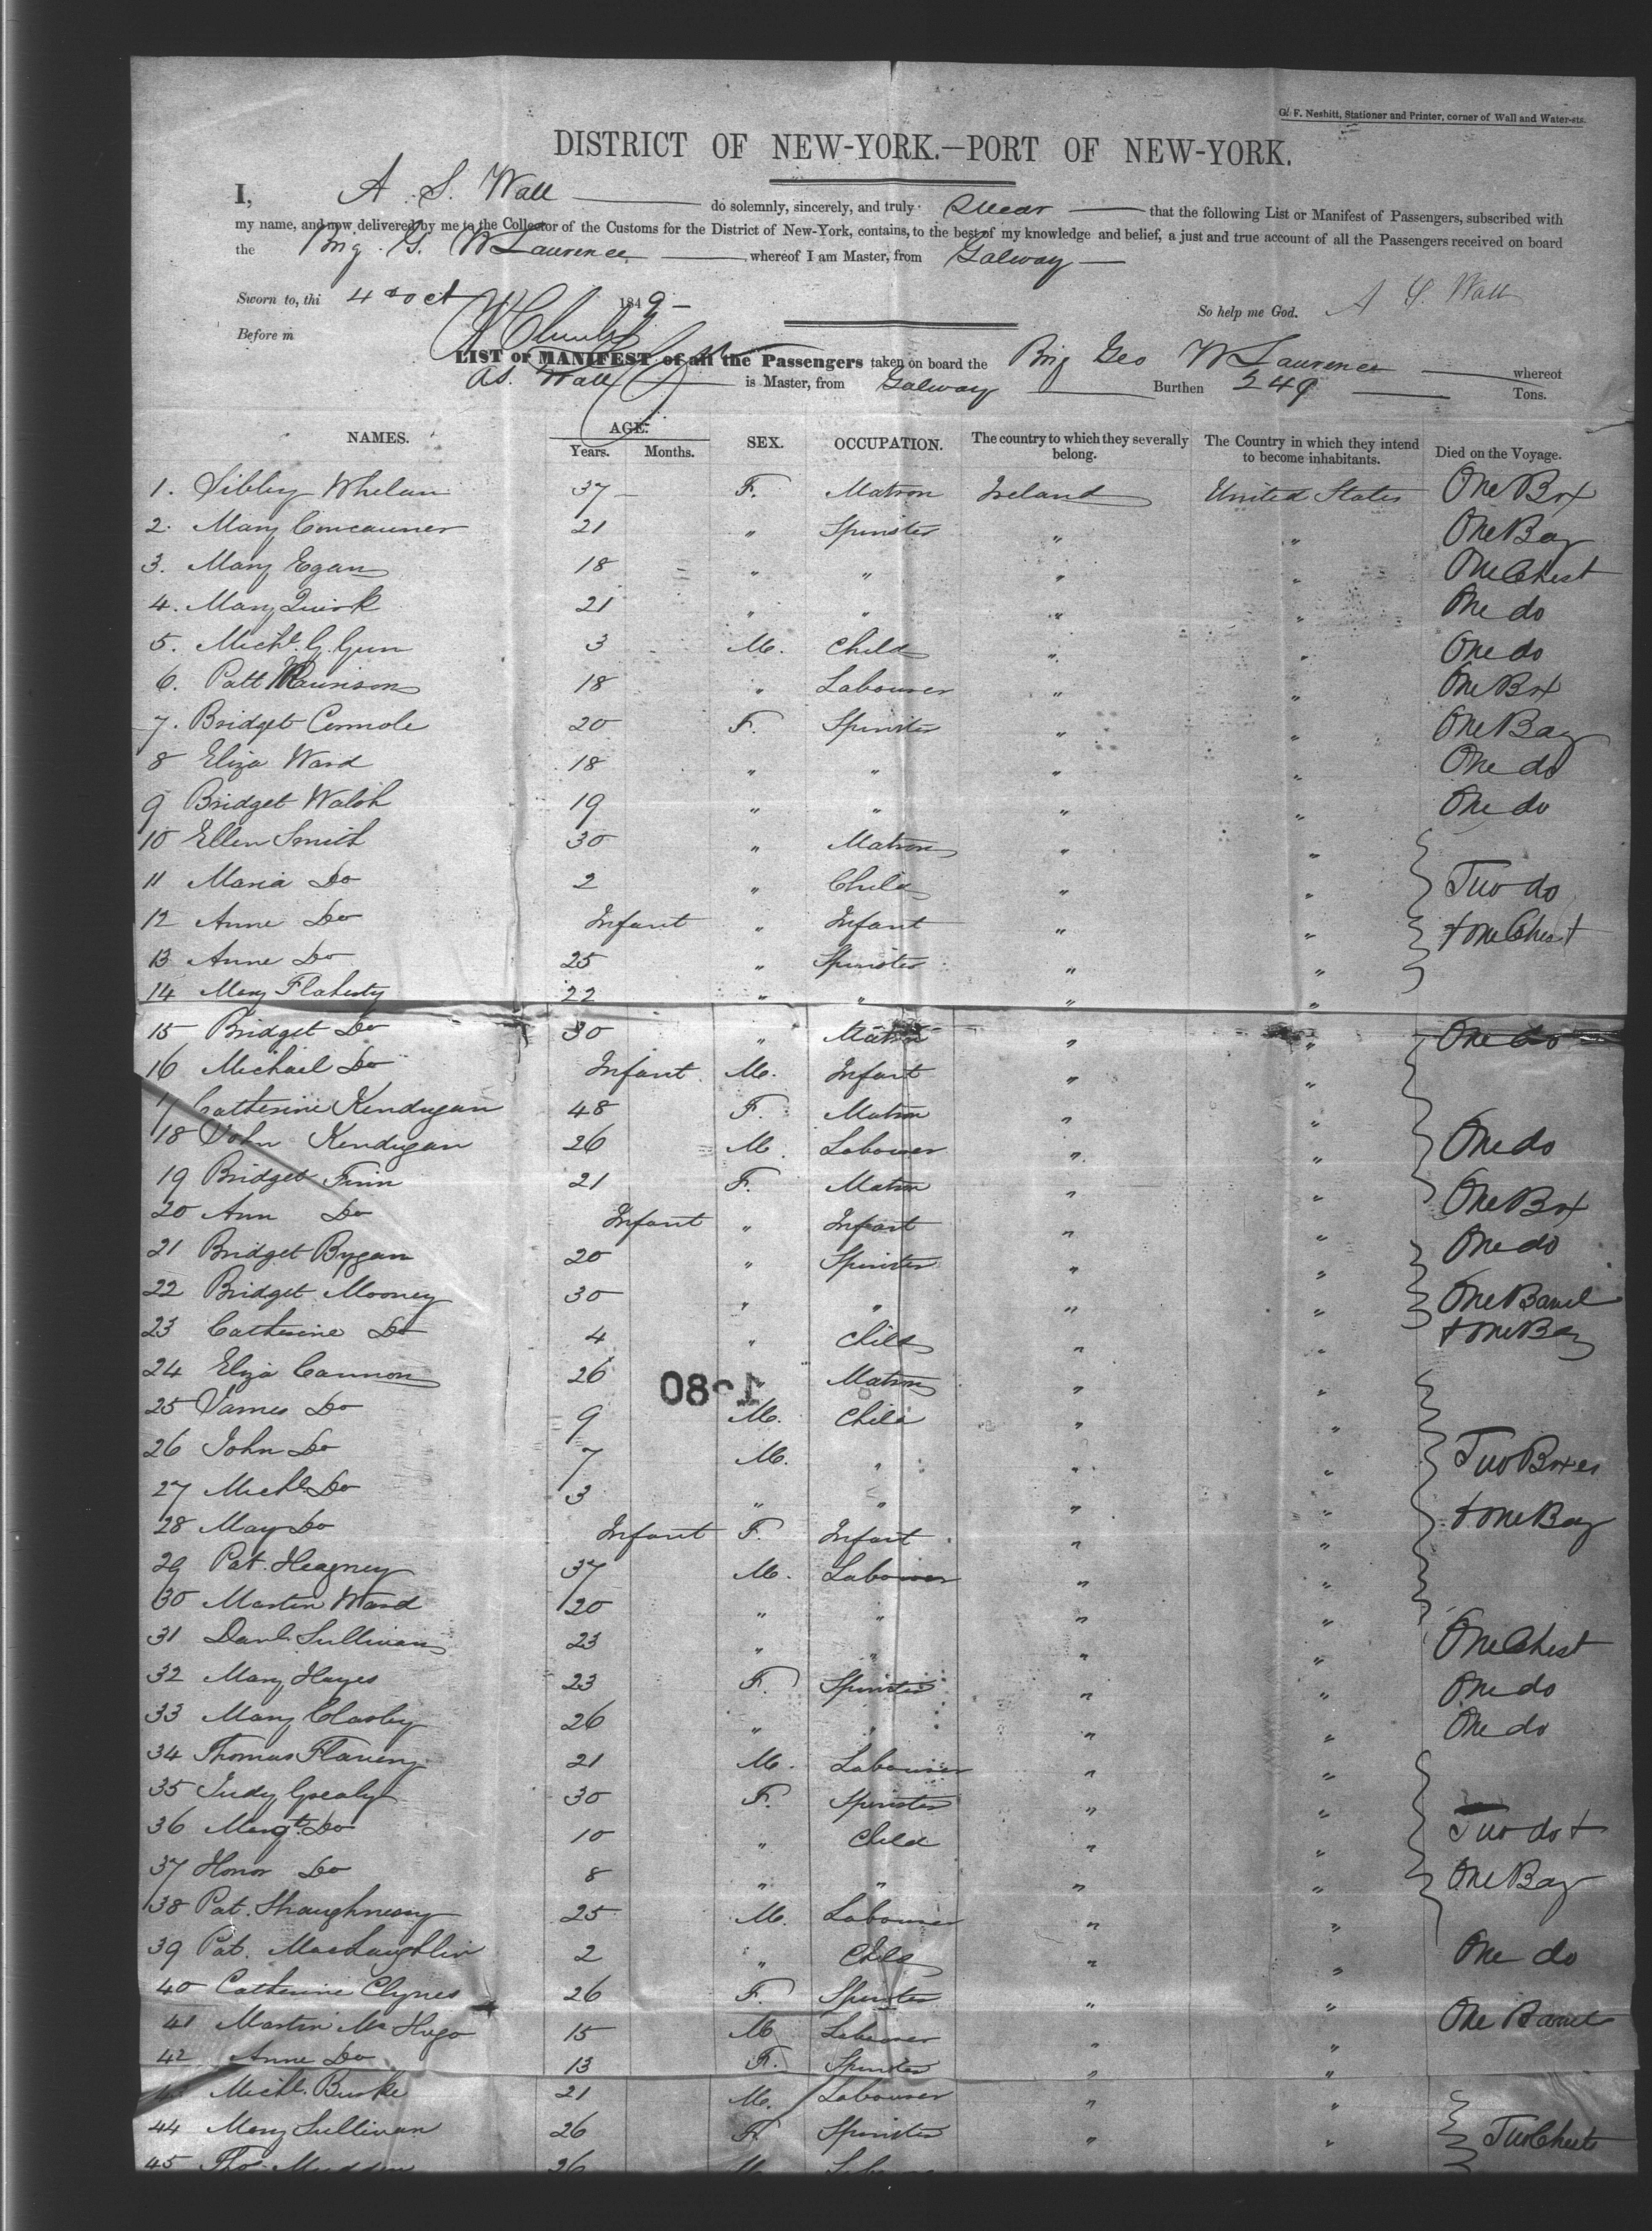 G. F. Nesbitt, Stationer and Printer, corner of Wall and Water-sts.
DISTRICT OF NEW-YORK.—PORT OF NEW-YORK.
I, A. S. Wall do solemnly, sincerely, and truly Swear that the following List or Manifest of Passengers, subscribed with
my name, and now delivered by me to the Collector of the Customs for the District of New-York, contains, to the best of my knowledge and belief, a just and true account of all the Passengers received on board
the Brig G. W Laurence whereof I am Master, from Galway
Sworn to, thi 4 Oct 1849 So help me God. A S. Wall
Before m
LIST or MANIFEST of all the Passengers taken on board the Brig Geo W Laurence whereof
AS. Wall is Master, from Galway Burthen 249 Tons.
NAMES. AGE. Years. Months. SEX. OCCUPATION. The country to which they severally belong. The Country in which they intend to become inhabitants. Died on the Voyage.
1. Sibby Whelan 37 F. Matron Ireland United States One Box
2. Mary 21 " Spinster " " One Bag
3. Mary Egan 18 " " " " One Chest
4. Mary Quirk 21 " " " " One do
5. Michl. G. Gun 3 M. Child " " One do
6. Patt 18 " Labourer " " One Box
7. Bridget Connole 20 F. Spinster " " One Bag
8 Eliza Ward 18 " " " " One do
9 Bridget Walsh 19 " " " " One do
10 Ellen Smith 30 " Matron " "
11 Maria Do 2 " Child " " Two do
12 Anne Do Infant " Infant " " + One Chest
13 Anne Do 25 " Spinster " "
14 Mary Flaherty 22 " " " "
15 Bridget Do 30 " Matron " " One do
16 Michael Do Infant M. Infant " "
17 Catherine Kendugan 48 F. Matron " "
18 John Kendugan 26 M. Labourer " " One do
19 Bridget Finn 21 F. Matron " " One Box
20 Ann Do Infant " Infant " " One do
21 Bridget Bygan 20 " Spinster " "
22 Bridget Mooney 30 " " " " One Barrel
23 Catherine Do 4 " Child " " + One Bag
24 Eliza Cannon 26 " Matron " "
25 James Do 9 M. Child " "
26 John Do 7 M. " " " Two Boxes
27 Michl. Do 3 " " " "
28 May Do Infant F. Infant " " + One Bag
29 Pat. Heagney 37 M. Labourer " "
30 Martin Ward 20 " " " "
31 Danl. Sullivan 23 " " " " One Chest
32 Mary Hayes 23 F. Spinster " " One do
33 Mary Clasby 26 " " " " One do
34 Thomas Flaveny 21 M. Labourer " "
35 Judy Grealy 30 F. Spinster " "
36 Margt. Do 10 " Child " " Two do +
37 Honor Do 8 " " " " One Bag
38 Pat. Shaughnessy 25 M. Labourer " "
39 Pat. MacLaughlin 2 " Child " " One do
40 Catherine Clynes 26 F. Spinster " "
41 Martin Mc Hugo 15 M Labourer " " One Barrel
42 Anne Do 13 F. Spinster " "
Michl. Burke 21 M. Labourer " "
44 Mary Sullivan 26 F. Spinster " " Two Chests
45 Thos. Madden 26 M.